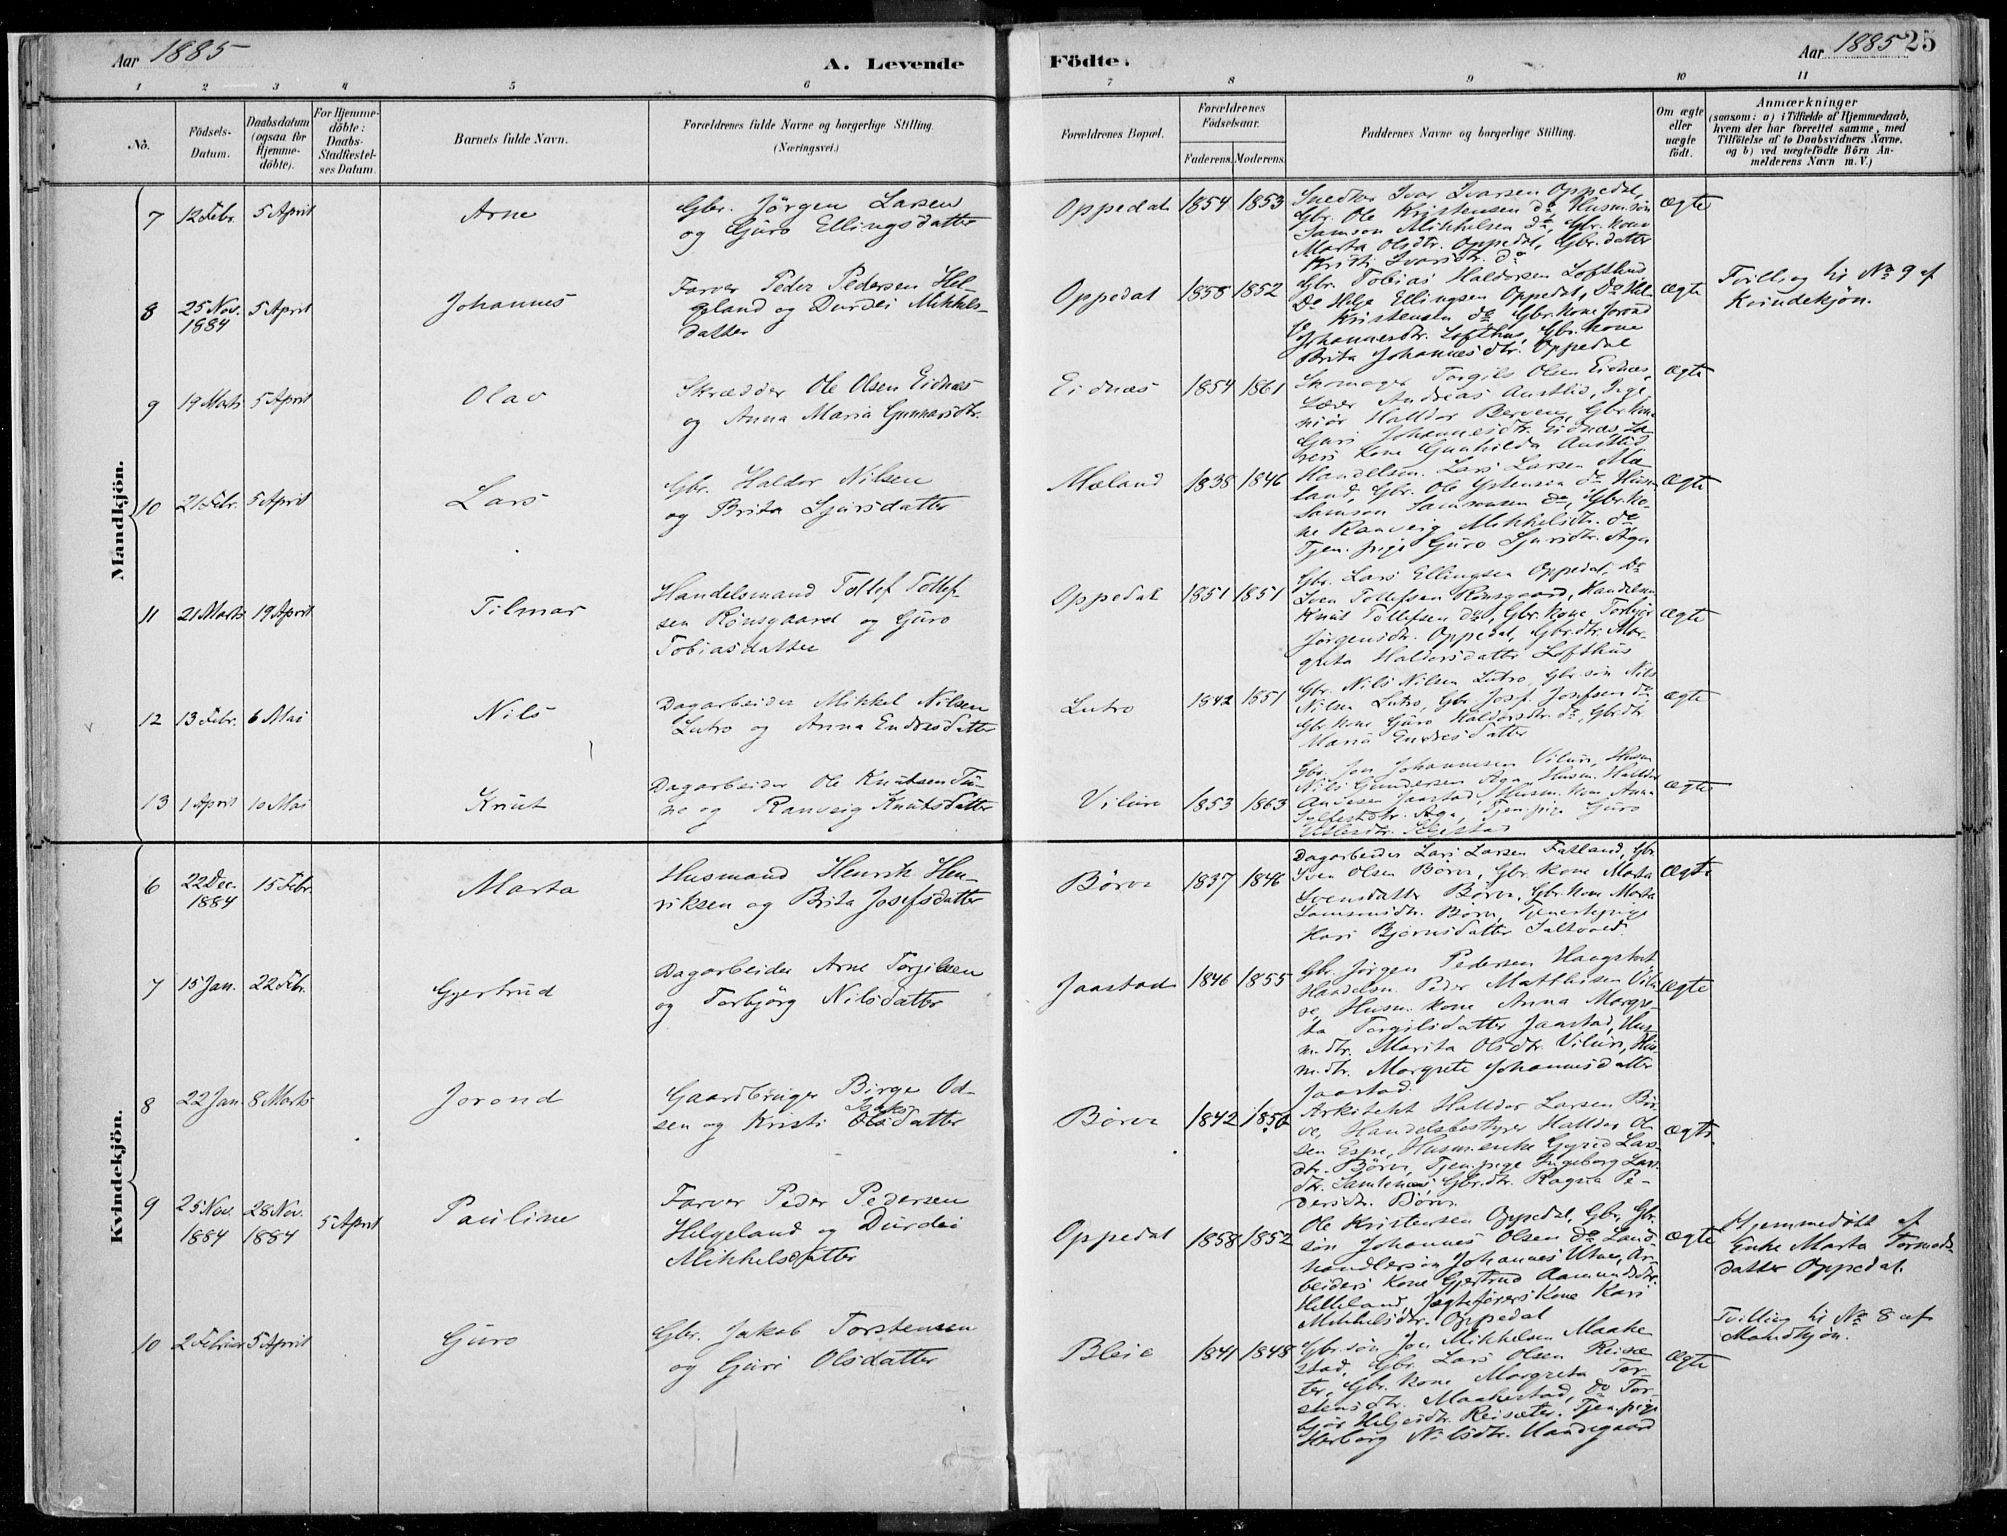 Aar 1885
A. Levende
Födte.
Aar 1885
25
1 2 3 4 5 6 7 8 9 10 11
No.
Födsels-
Datum.
Daabsdatum
(ogsaa for
Hjemme-
döbte).
For Hjemme-
döbte:
Daabs-
Stadfæstel-
ses Datum.
Barnets fulde Navn.
Forældrenes fulde Navne og borgerlige Stilling.
(Næringsvei.)
Forældrenes Bopæl.
Forældrenes
Födselsaar.
Faderens. Moderens.
Faddernes Navne og borgerlige Stilling.
Om ægte
eller
uægte
født.
Anmærkninger
(saasom: a) i Tilfælde af Hjemmedaab,
hvem der har forrettet samme, med
Tilföielse af to Daabsvidners Navne,
og b) ved uægtefödte Börn An-
melderens Navn m. V.)
Mandkjön.
7 12 Febr. 5 April Arne
Gbr. Jörgen Larsen
og Guro Ellingsdatter
Oppedal 1854 1853
Snedker Ivar Ivarsen Oppedal,
Gbr. Ole Kristensen do Husm.søn
Samson Mikkelsen do, Gbr. kone
Marta Olsdtr. Oppedal, Gbr. datter
Kristi Ivarsdtr. do
ægte
8 25 Nov. 1884 5 April Johannes
Farver Peder Pedersen Hel-
geland og Durdei Mikkels-
datter
Oppedal 1858 1852
Gbr. Tobias Haldorsen Lofthus,
Do Helje Ellingsen Oppedal, Do
Kristensen do Gbr. kone Jorond
Johannesdtr. Lofthus, Gbr. kone
Brita Johannesdtr. Oppedal
ægte
Tvilling til No 9 af
Kvindekjøn.
9 19 Marts 5 April Olav
Skrædder Ole Olsen Eidnæs
og Anna Maria Gunnarsdtr.
Eidnæs 1854 1861
Skomager Torgils Olsen Eidnæs,
Lærer Andreas Austlid, Inge-
niør Halldor Berven, Gbr. kone
Guri Johannesdtr. Eidnæs Læ-
rers kone Gunhilda Austlid
ægte
10 21 Febr. 5 April Lars
Gbr. Haldor Nilsen
og Brita Sjursdatter
Mæland 1838 1846
Handelsm. Lars Larsen Mæ-
land, Gbr. Ole do Husm.
Samson Samsonsen do, Gbr. ko-
ne Ranveig Mikkelsdtr. do
Tjen. pige Guro Sjursdtr. Aga
ægte
11 21 Marts 19 April Tilmar
Handelsmand Tollef Tollef-
sen Rönsgaard og Guro
Tobiasdatter
Oppedal 1851 1851
Gbr. Lars Ellingsen Oppedal, Do
Sven Tollefsen Rönsgaard, Handelsm.
Knut Tollefsen do, Gbr. kone Torbjør
Jørgensdtr. Oppedal, Gbr. dtr. Mar-
greta Haldorsdatter Lofthus
ægte
12 13 Febr. 6 Mai Nils
Dagarbeider Mikkel Nilsen
Lutro og Anna Endresdatter
Lutro 1842 1851
Gbr. Nils Nilsen Lutro, Gbr. søn Nils
Nilsen Lutro, Gbr. Josef Josefsen do
Gbr. kone Guro Haldorsdtr. do, Gbr. dtr.
Maria Endresdatter
ægte
13 1 April 10 Mai Knut
Dagarbeider Ole Knutsen Tu-
ne og Ranveig Knutsdatter
Vilure 1853 1863
Gbr. Jon Johannesen Vilure, Husm.
Nils Gundersen Aga, Husm. Halldor
Andersen Jaastad, Husm. kone Anna
Sylfestdtr. Aga, Tjen. pige Guro
ægte
Kvindekjön.
6 22 Dec. 1884 15 Febr. Marta
Husmand Henrik Hen-
riksen og Brita Josefsdatter
Børve 1837 1846
Dagarbeider Lars Larsen Fatland, Gbr.
Sven Olsen Børve, Gbr. kone Marta
Svensdatter Børve, Gbr. kone Marta
Samsonsdtr. Børve, Tjenestepige
Kari Bjørnsdatter
ægte
7 15 Jan. 22 Febr. Gjertrud
Dagarbeider Arne Torgilsen
og Torbjörg Nilsdatter
Jaastad 1846 1855
Gbr. Jørgen Pedersen Haugstvet
Handelsm. Peder Matthisen Vilu-
re, Husm. kone Anna Margre-
ta Torgilsdatter Jaastad, Hus-
m. dtr. Marita Olsdtr. Vilure, Hus-
m. dtr. Margrete Johannesdatter
Jaastad.
ægte
8 22 Jan. 8 Marts Jorond
Gaardbruger Birge Od-
sen og Kristi Olsdatter
Børve 1842 1856
Arkitekt Halldor Larsen Bør-
ve, Handelsbestyrer Halldor Ol-
sen Espe, Husm. enke Gyrid Lars-
dtr. Børve, Tjen. pige Ingeborg Lars-
dtr. Samlenæs Gbr. dtr. Ragna Pe-
dersdtr. Børve
ægte
9 25 Nov. 1884 28 Nov. 1884 5 April Pauline
Farver Peder Pedersen
Helgeland og Durdei
Mikkelsdatter
Oppedal 1858 1852
Ole Kristensen Oppedal, Gbr., Gbr.
søn Johannes Olsen do Land-
handlersøn Johannes Utne, Ar-
beiders kone Gjertrud Aamundsdtr.
Helleland, Jægtefører s kone Kari
Mikkelsdtr. Oppedal
ægte
Hjemmedøbt af
Enke Marta Tormods-
datter Oppedal.
Tvilling til No 8 af
Mandkjøn.
10 2 Februar 5 April Guro
Gbr. Jakob Torstensen
og Guri Olsdatter
Bleie 1841 1848
Gbr. søn Jon Mikkelsen Maake-
stad, Gbr. Lars Olsen Reisæ-
ter, Gbr. kone Margreta Tor-
stensdtr. Maakestad, Do Tor-
bjør Heljesdtr. Reisæter. Tjen. pige
Herborg Nilsdtr. Haandegaard
ægte